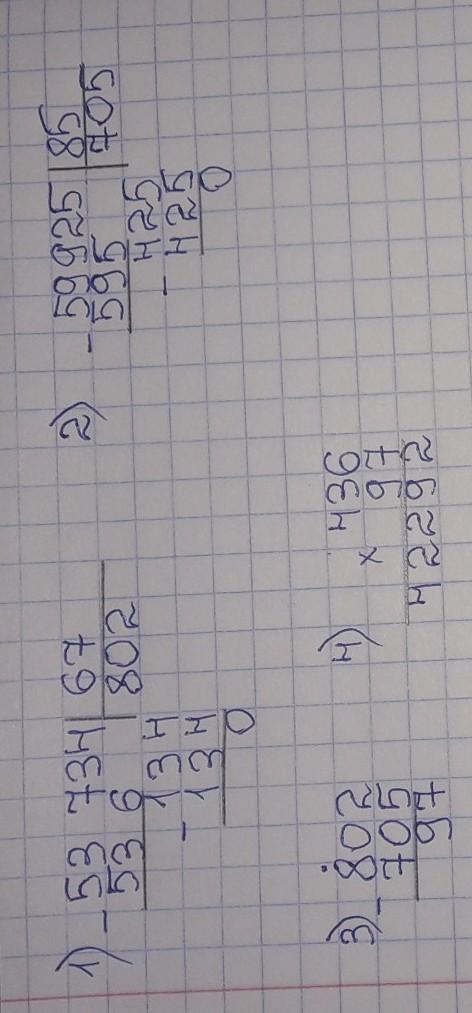 1) - 53 734 | 67
53 6 | 802
- 134
134
0
2) - 59925 | 85
595 | 705
- 425
425
0
3) - 802
705
97
4) × 436
97
42292